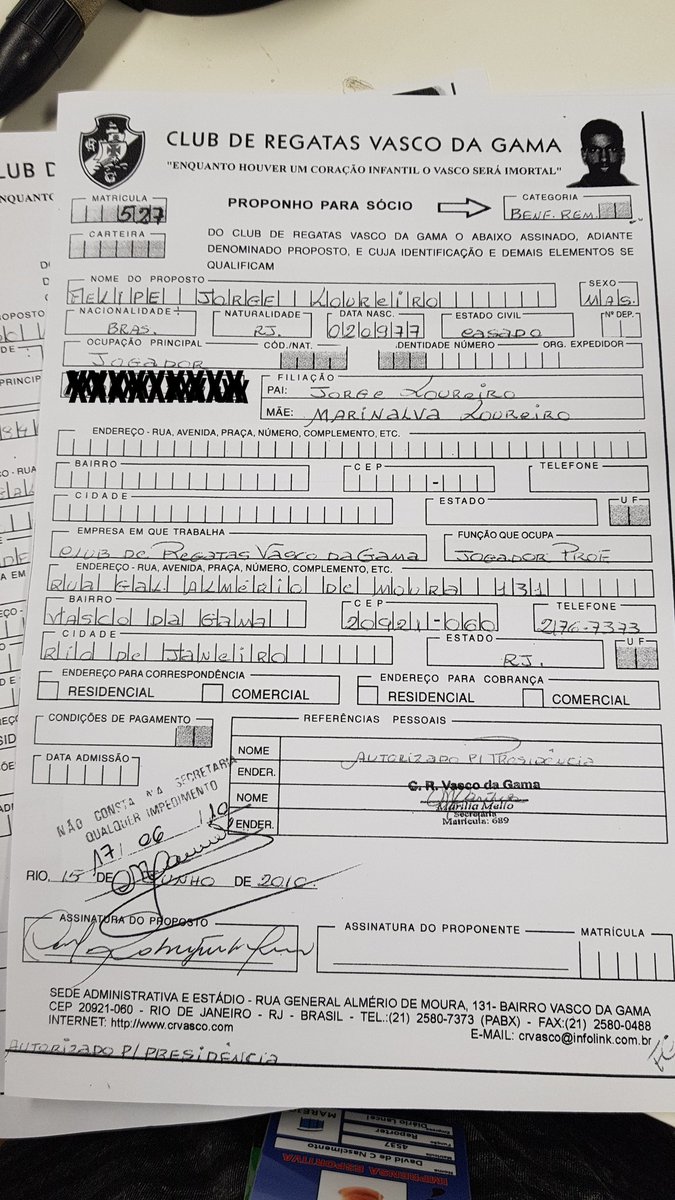 CLUB DE REGATAS VASCO DA GAMA
"ENQUANTO HOUVER UM CORAÇÃO INFANTIL O VASCO SERÁ IMORTAL"
MATRÍCULA
527
PROPONHO PARA SÓCIO
CATEGORIA
BENE. REM.
CARTEIRA
DO CLUB DE REGATAS VASCO DA GAMA O ABAIXO ASSINADO, ADIANTE
DENOMINADO PROPOSTO, E CUJA IDENTIFICAÇÃO E DEMAIS ELEMENTOS SE
QUALIFICAM
NOME DO PROPOSTO
FELIPE JORGE LOUREIRO
SEXO
MAS.
NACIONALIDADE
BRAS.
NATURALIDADE
RJ.
DATA NASC.
020977
ESTADO CIVIL
CASADO
Nº DEP.
OCUPAÇÃO PRINCIPAL
JOGADOR
CÓD./NAT.
.DENTIDADE NÚMERO
ORG. EXPEDIDOR
FILIAÇÃO
PAI: JORGE LOUREIRO
MÃE: MARINALVA LOUREIRO
ENDEREÇO - RUA, AVENIDA, PRAÇA, NÚMERO, COMPLEMENTO, ETC.
BAIRRO
CEP
-
TELEFONE
CIDADE
ESTADO
UF
EMPRESA EM QUE TRABALHA
CLUB DE REGATAS VASCO DA GAMA
FUNÇÃO QUE OCUPA
JOGADOR PROF
ENDEREÇO - RUA, AVENIDA, PRAÇA, NÚMERO, COMPLEMENTO, ETC.
RUA GAL ALMÉRIO DE MOURA 131
BAIRRO
VASCO DA GAMA
CEP
20921-060
TELEFONE
2176-7373
CIDADE
RIO DE JANEIRO
ESTADO
RJ.
UF
ENDEREÇO PARA CORRESPONDÊNCIA
RESIDENCIAL COMERCIAL
ENDEREÇO PARA COBRANÇA
RESIDENCIAL COMERCIAL
CONDIÇÕES DE PAGAMENTO
DATA ADMISSÃO
REFERÊNCIAS PESSOAIS
NOME
AUTORIZADO P/ PRESIDÊNCIA
ENDER.
C. R. Vasco da Gama
NOME
Marília Mello
Secretária
Matrícula: 689
ENDER.
NÃO CONSTA NA SECRETARIA
QUALQUER IMPEDIMENTO
17/06/10
RIO. 15 DE JUNHO DE 2010.
ASSINATURA DO PROPOSTO
ASSINATURA DO PROPONENTE
MATRÍCULA
SEDE ADMINISTRATIVA E ESTÁDIO - RUA GENERAL ALMÉRIO DE MOURA, 131- BAIRRO VASCO DA GAMA
CEP 20921-060 - RIO DE JANEIRO - RJ - BRASIL - TEL.:(21) 2580-7373 (PABX) - FAX:(21) 2580-0488
INTERNET: http://www.crvasco.com
E-MAIL: crvasco@infolink.com.br
AUTORIZADO P/ PRESIDÊNCIA
Diário Lance!
Reporter
Função
4537
Matrícula
David de C Nascimento
Nome
IMPRENSA ESPORTIVA